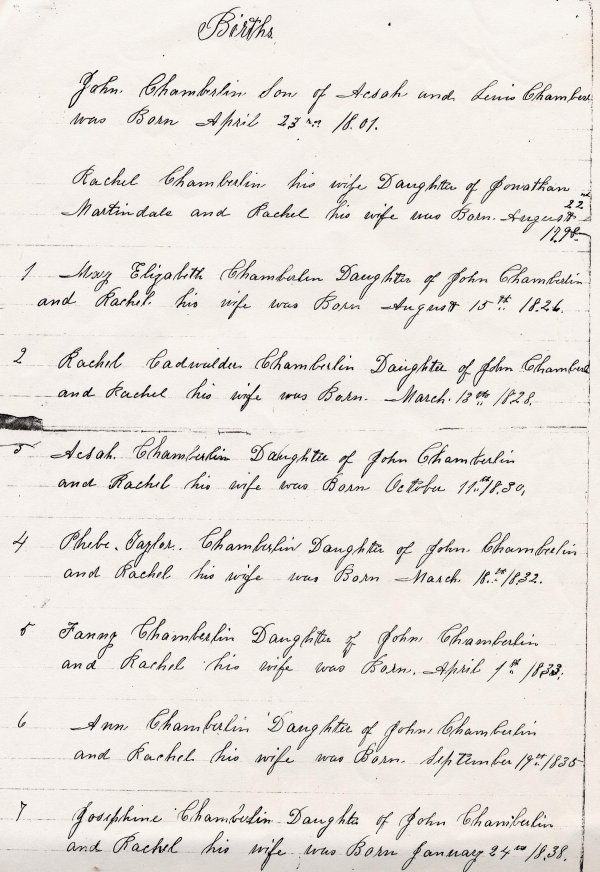 Births
John Chamberlin Son of Acsah and Lewis Chamber
was Born April 23rd 1801.
Rachel Chamberlin his wife Daughter of Jonathan
Martindale and Rachel his wife was Born August 22nd
1798
1 Mary Elizabeth Chamberlin Daughter of John Chamberlin
and Rachel his wife was Born August 15th 1826.
2 Rachel Cadwalder Chamberlin Daughter of John Chamberl
and Rachel his wife was Born March 13th 1828.
3 Acsah Chamberlin Daughter of John Chamberlin
and Rachel his wife was Born October 11th 1830,
4 Phebe Taylor Chamberlin Daughter of John Chamberlin
and Rachel his wife was Born March 18th 1832.
5 Fanny Chamberlin Daughter of John Chamberlin
and Rachel his wife was Born April 1st 1833.
6 Ann Chamberlin Daughter of John Chamberlin
and Rachel his wife was Born September 19th 1835
7 Josephine Chamberlin Daughter of John Chamberlin
and Rachel his wife was Born January 24th 1838.